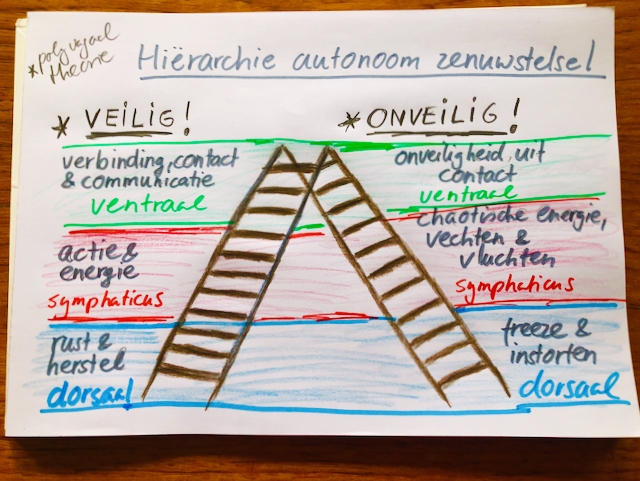 *polyvagaal
theorie
Hiërarchie autonoom zenuwstelsel
* VEILIG!
* ONVEILIG!
verbinding, contact
& communicatie
ventraal
onveiligheid, uit
contact
ventraal
actie &
energie
symphaticus
chaotische energie,
vechten &
vluchten
symphaticus
rust &
herstel
dorsaal
freeze &
instorten
dorsaal